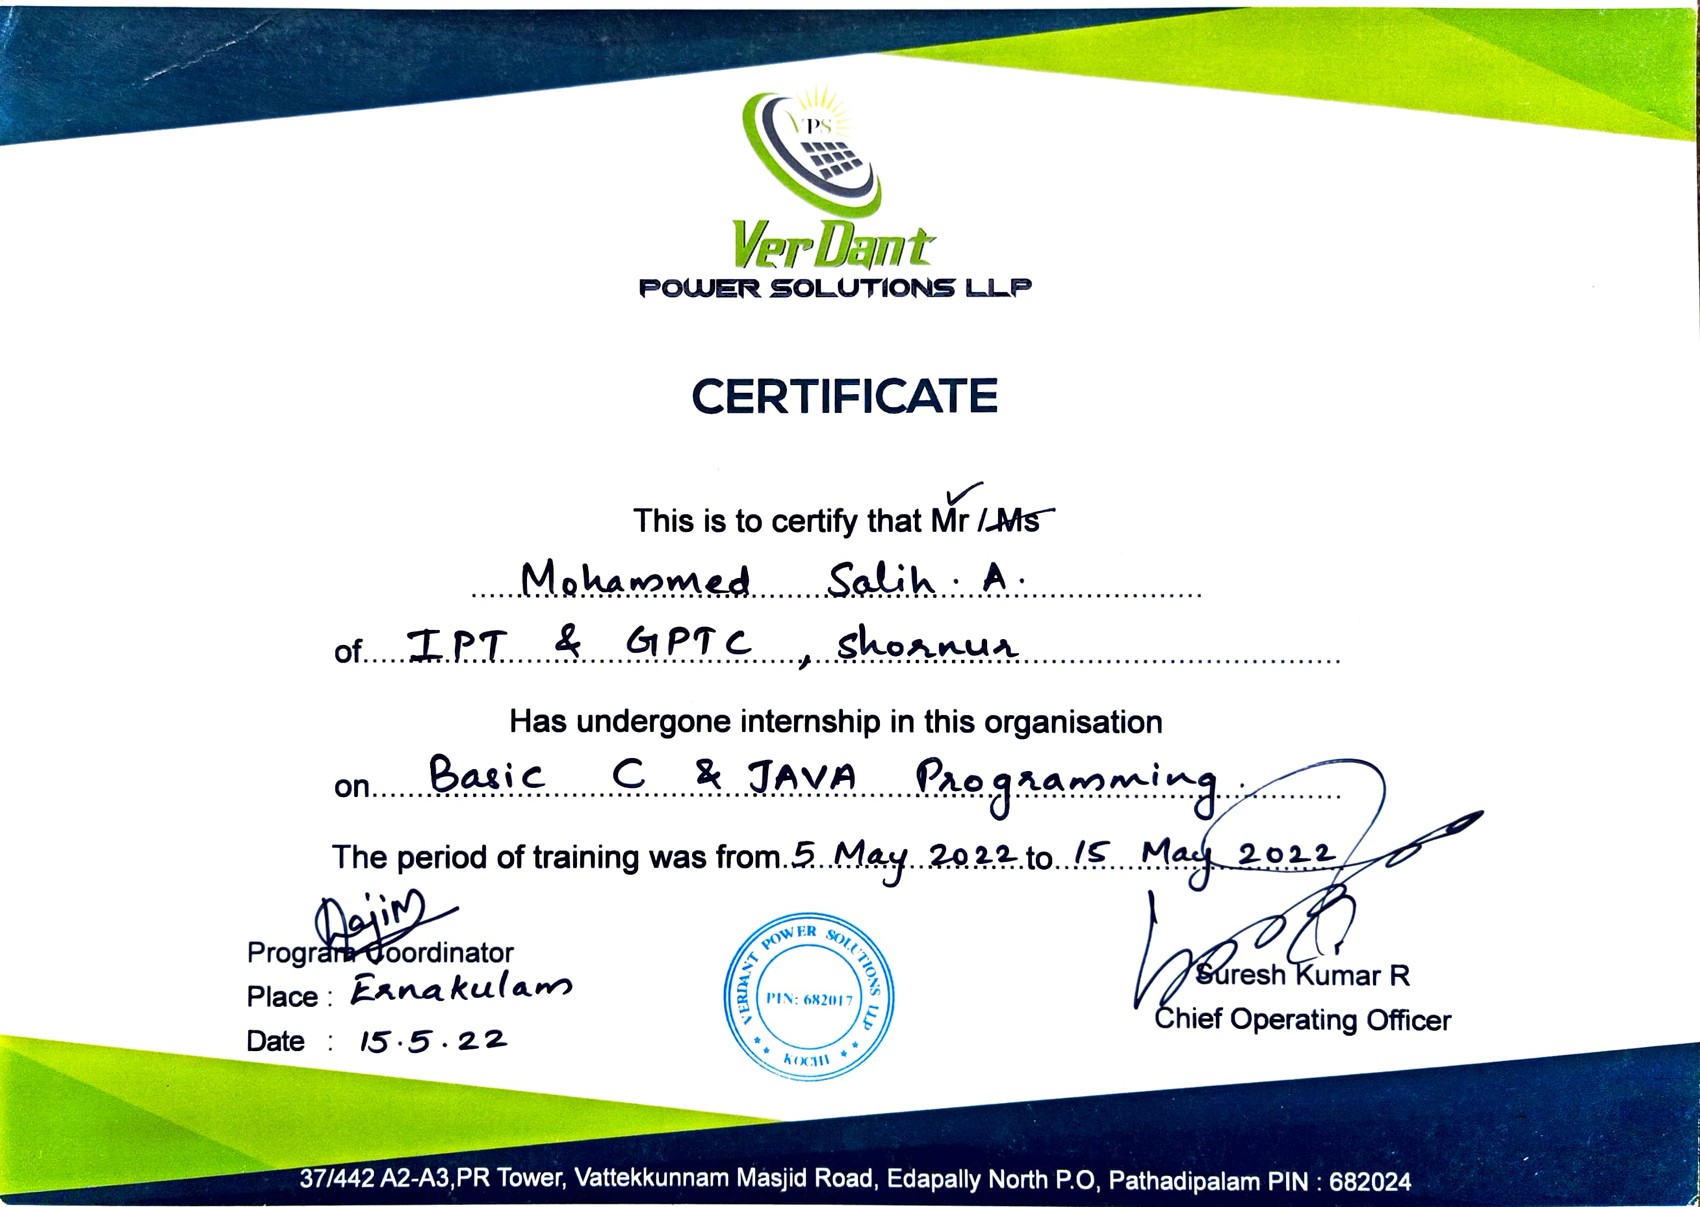 VPS
VerDant
POWER SOLUTIONS LLP
CERTIFICATE
This is to certify that Mr / Ms
Mohammed Salih. A.
of IPT & GPTC, Shornur
Has undergone internship in this organisation
on Basic C & JAVA Programming.
The period of training was from 5 May 2022 to 15 May 2022
Program Coordinator
Place : Ernakulam
Date : 15.5.22
VERDANT POWER SOLUTIONS LLP
PIN: 682017
KOCHI
Suresh Kumar R
Chief Operating Officer
37/442 A2-A3,PR Tower, Vattekkunnam Masjid Road, Edapally North P.O, Pathadipalam PIN : 682024